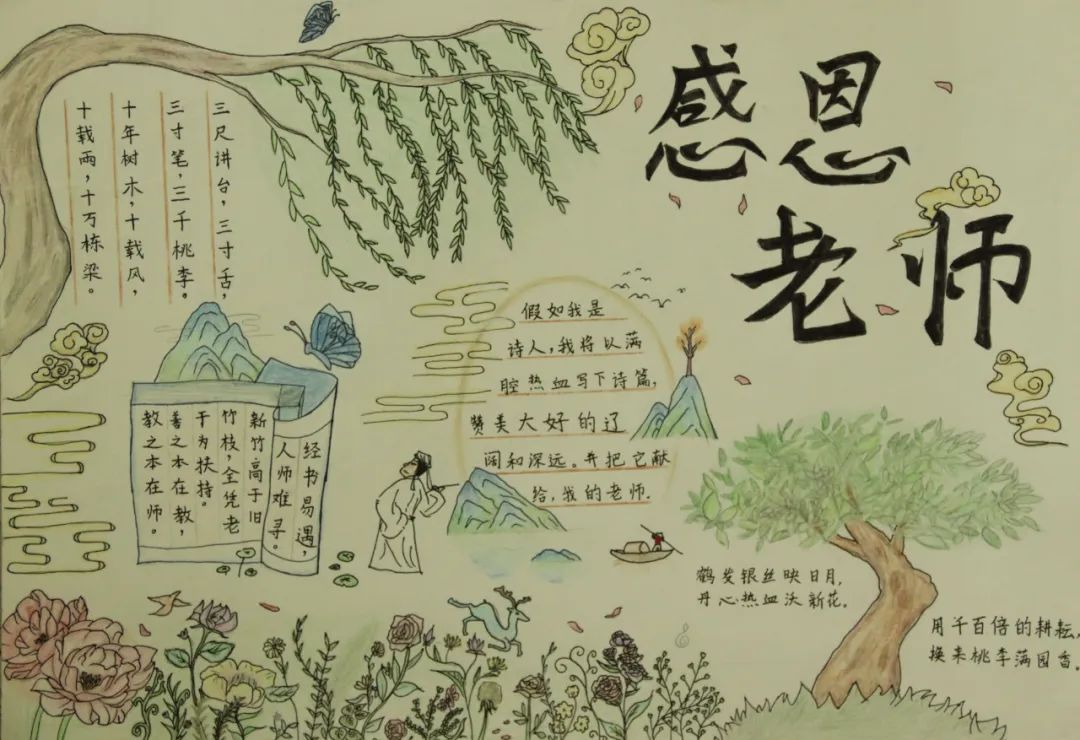 感恩
老师
三尺讲台，三寸舌，
三寸笔，三千桃李。
十年树木，十载风，
十载雨，十万栋梁。
经书易遇，
人师难寻。
新竹高于旧
竹枝，全凭老
干为扶持。
善之本在教，
教之本在师。
假如我是
诗人，我将以满
腔热血写下诗篇，
赞美大好的辽
阔和深远。并把它献
给，我的老师.
鹤发银丝映日月，
丹心热血沃新花。
用千百倍的耕耘，
换来桃李满园香。